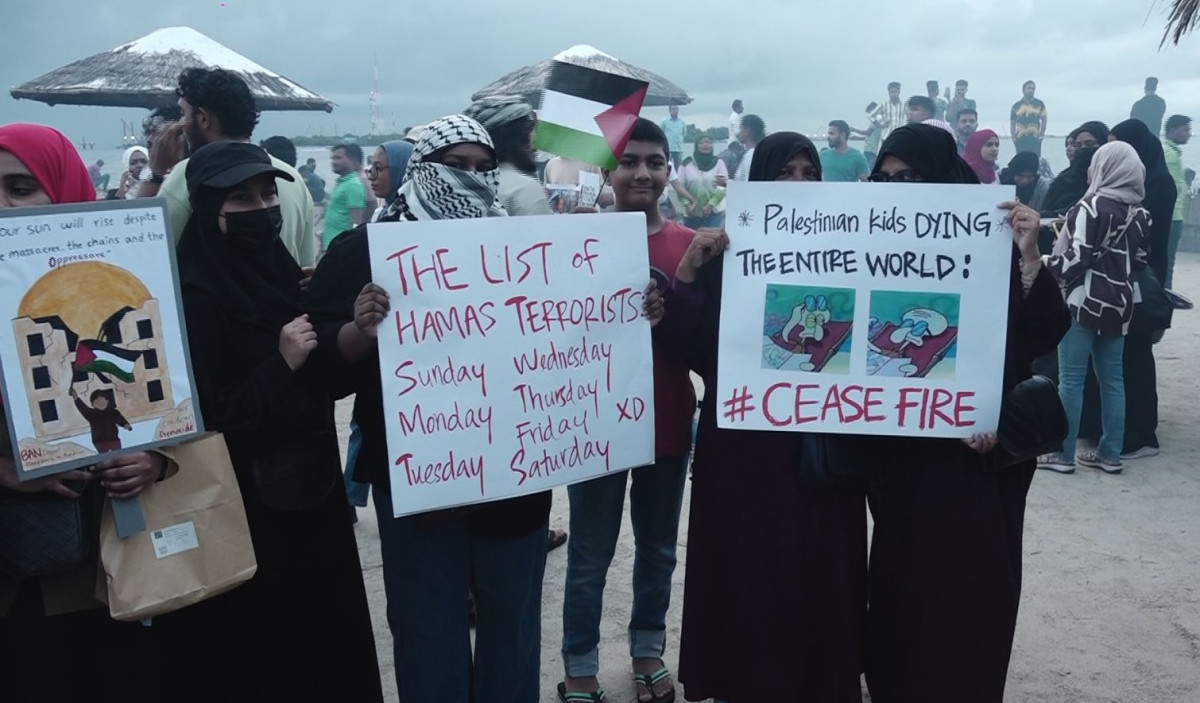 OUR SUN WILL RISE DESPITE
MASSACRES, THE CHAINS AND THE
Oppressors"
BAN
Genocide
THE LIST of
HAMAS TERRORISTS:
Sunday Wednesday
Monday Thursday
Tuesday Friday XD
Saturday
* Palestinian kids DYING *
THE ENTIRE WORLD:
# CEASE FIRE